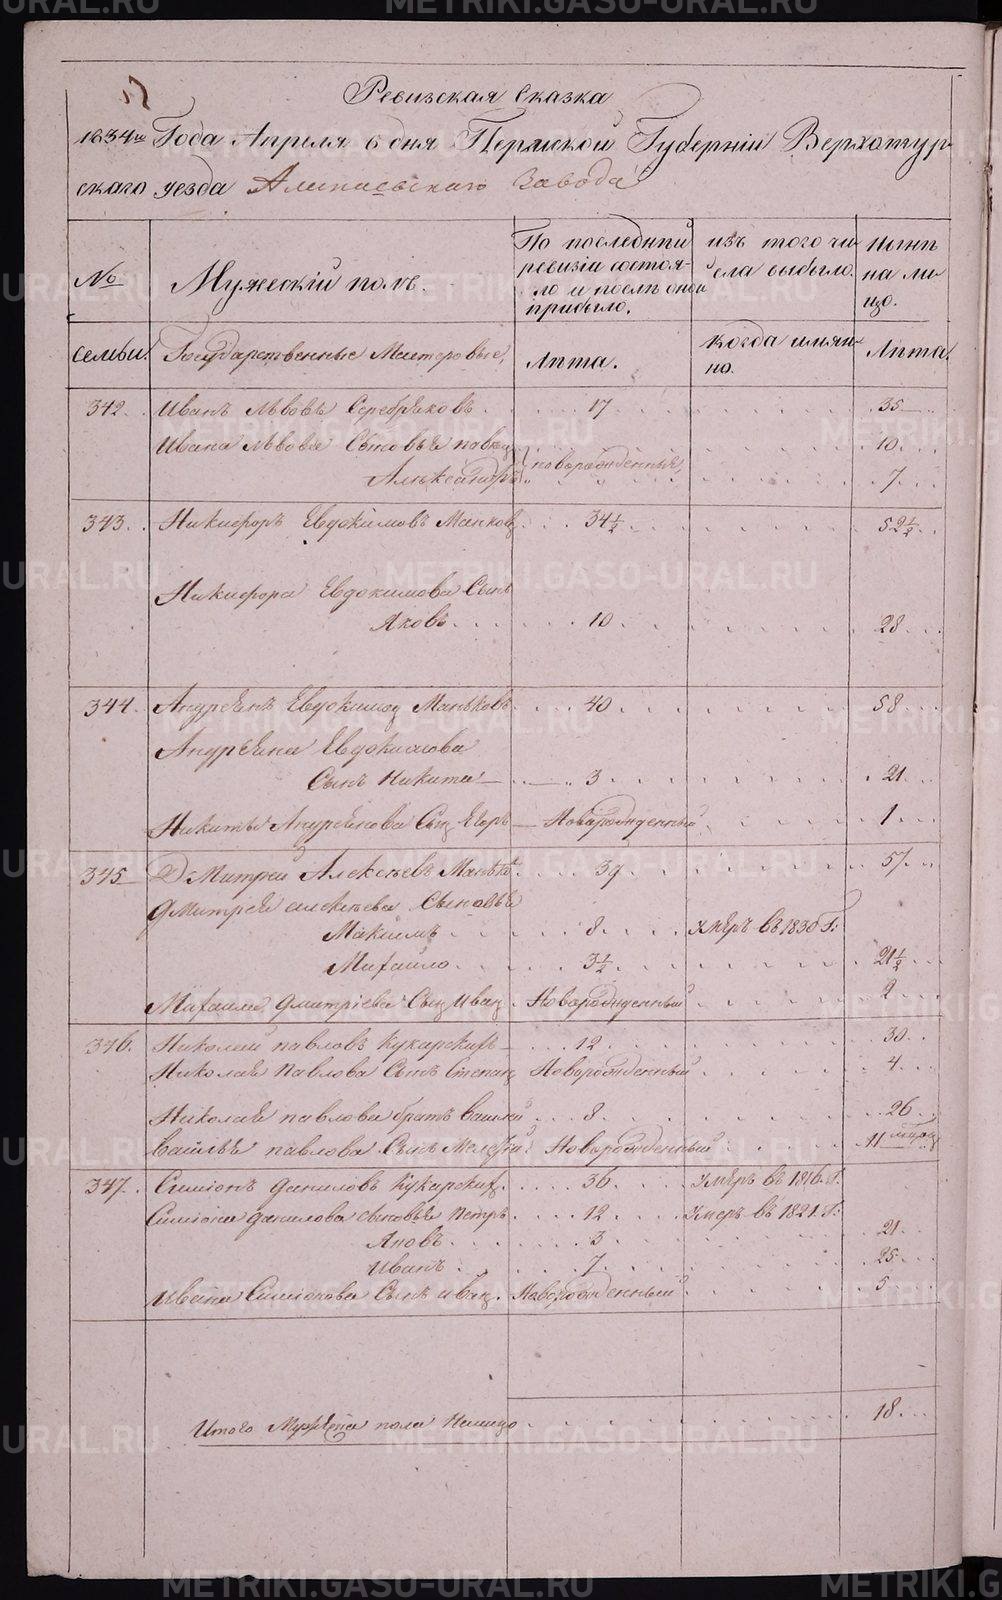 Ревизская Сказка
1834го Года Апреля 6 дня Пермской Губерніи Верхотур-
скаго уезда Алапаевскаго Завода
№ Мужескій полъ. По последнѣй ревизіи состоя-ло и послѣ оной прибыло. изъ того чи-сла выбыло. Нынѣ на ли-цо.
семьи. Государственные Мастеровые, Лѣта. когда имян-но. Лѣта.
342. Иванъ Львовъ Серебряковъ 17 35
Ивана Львова Сыновья павел новорожденныя 10
Александръ 7
343. Никифоръ Евдокимовъ Манков 34 1/2 52 1/2
Никифора Евдокимова Сынъ
Яковъ 10 28
344. Андреянъ Евдокимов Маньковъ 40 58
Андреяна Евдокимова
Сынъ Никита 3 21
Никиты Андреянова Сын Егоръ Новорожденный 1
345 Дмитрей Алексѣевъ Маньков 39 57
Дмитрея алексѣева Сыновья
Максимъ 8 умеръ въ 1830 Г:
Михайло 3 1/2 21 1/2
Михаила Дмитріева Сын Иван Новорожденный 2
346. Николай павловъ Кукарских 12 30
Николая Павлова Сынъ Степан Новорожденный 4
Николая павлова братъ Василий 8 26
Василья павлова Сынъ Новорожденный 11
347. Симіонъ Даниловъ Кукарских 36 умеръ въ 1816. Г.
Симіона данилова сыновья Петръ 12 Умеръ въ 1821. Г:
Яковъ 3 21
Иванъ 7 25
Ивана Симіонова Сынъ иван Новорожденный 5
Итого Мужеска пола Налицо 18
METRIKI.GASO-URAL.RU